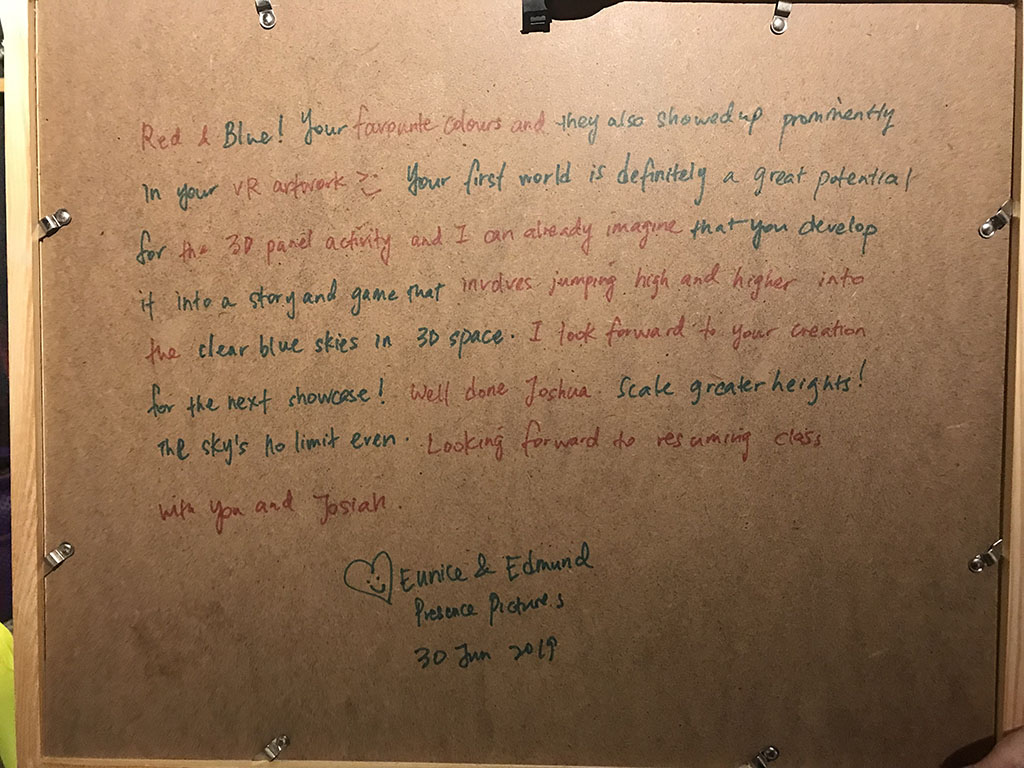 Red & Blue! Your favourite colours and they also showed up prominently
in your VR artwork >:)
Your first world is definitely a great potential
for the 3D panel activity and I can already imagine that you develop
it into a story and game that involves jumping high and higher into
the clear blue skies in 3D space. I look forward to your creation
for the next showcase! Well done Joshua. Scale greater heights!
The sky's no limit even. Looking forward to resuming class
with you and Josiah.
Eunice & Edmund
Presence Pictures
30 Jun 2019